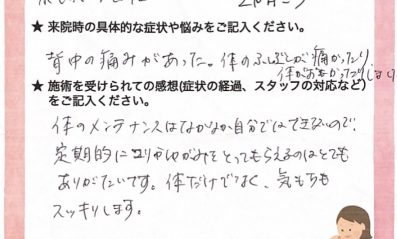 ★ 来院時の具体的な症状や悩みをご記入ください。
背中の痛みがあった。体のふしぶしが痛かったり
体がおもかったりしました
★ 施術を受けられての感想(症状の経過、スタッフの対応など)
をご記入ください。
体のメンテナンスはなかなか自分ではできないので、
定期的にコリやゆがみをとってもらえるのはとても
ありがたいです。体だけでなく、気もちも
スッキリします。